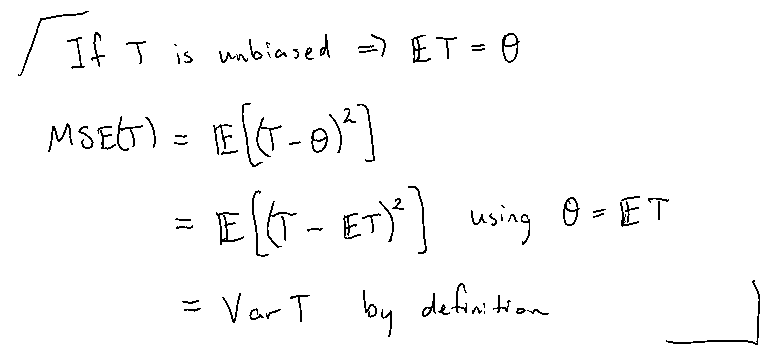 If T is unbiased ⇒ 𝔼T = θ
MSE(T) = 𝔼[(T - θ)²]
= 𝔼[(T - 𝔼T)²] using θ = 𝔼T
= Var T by definition